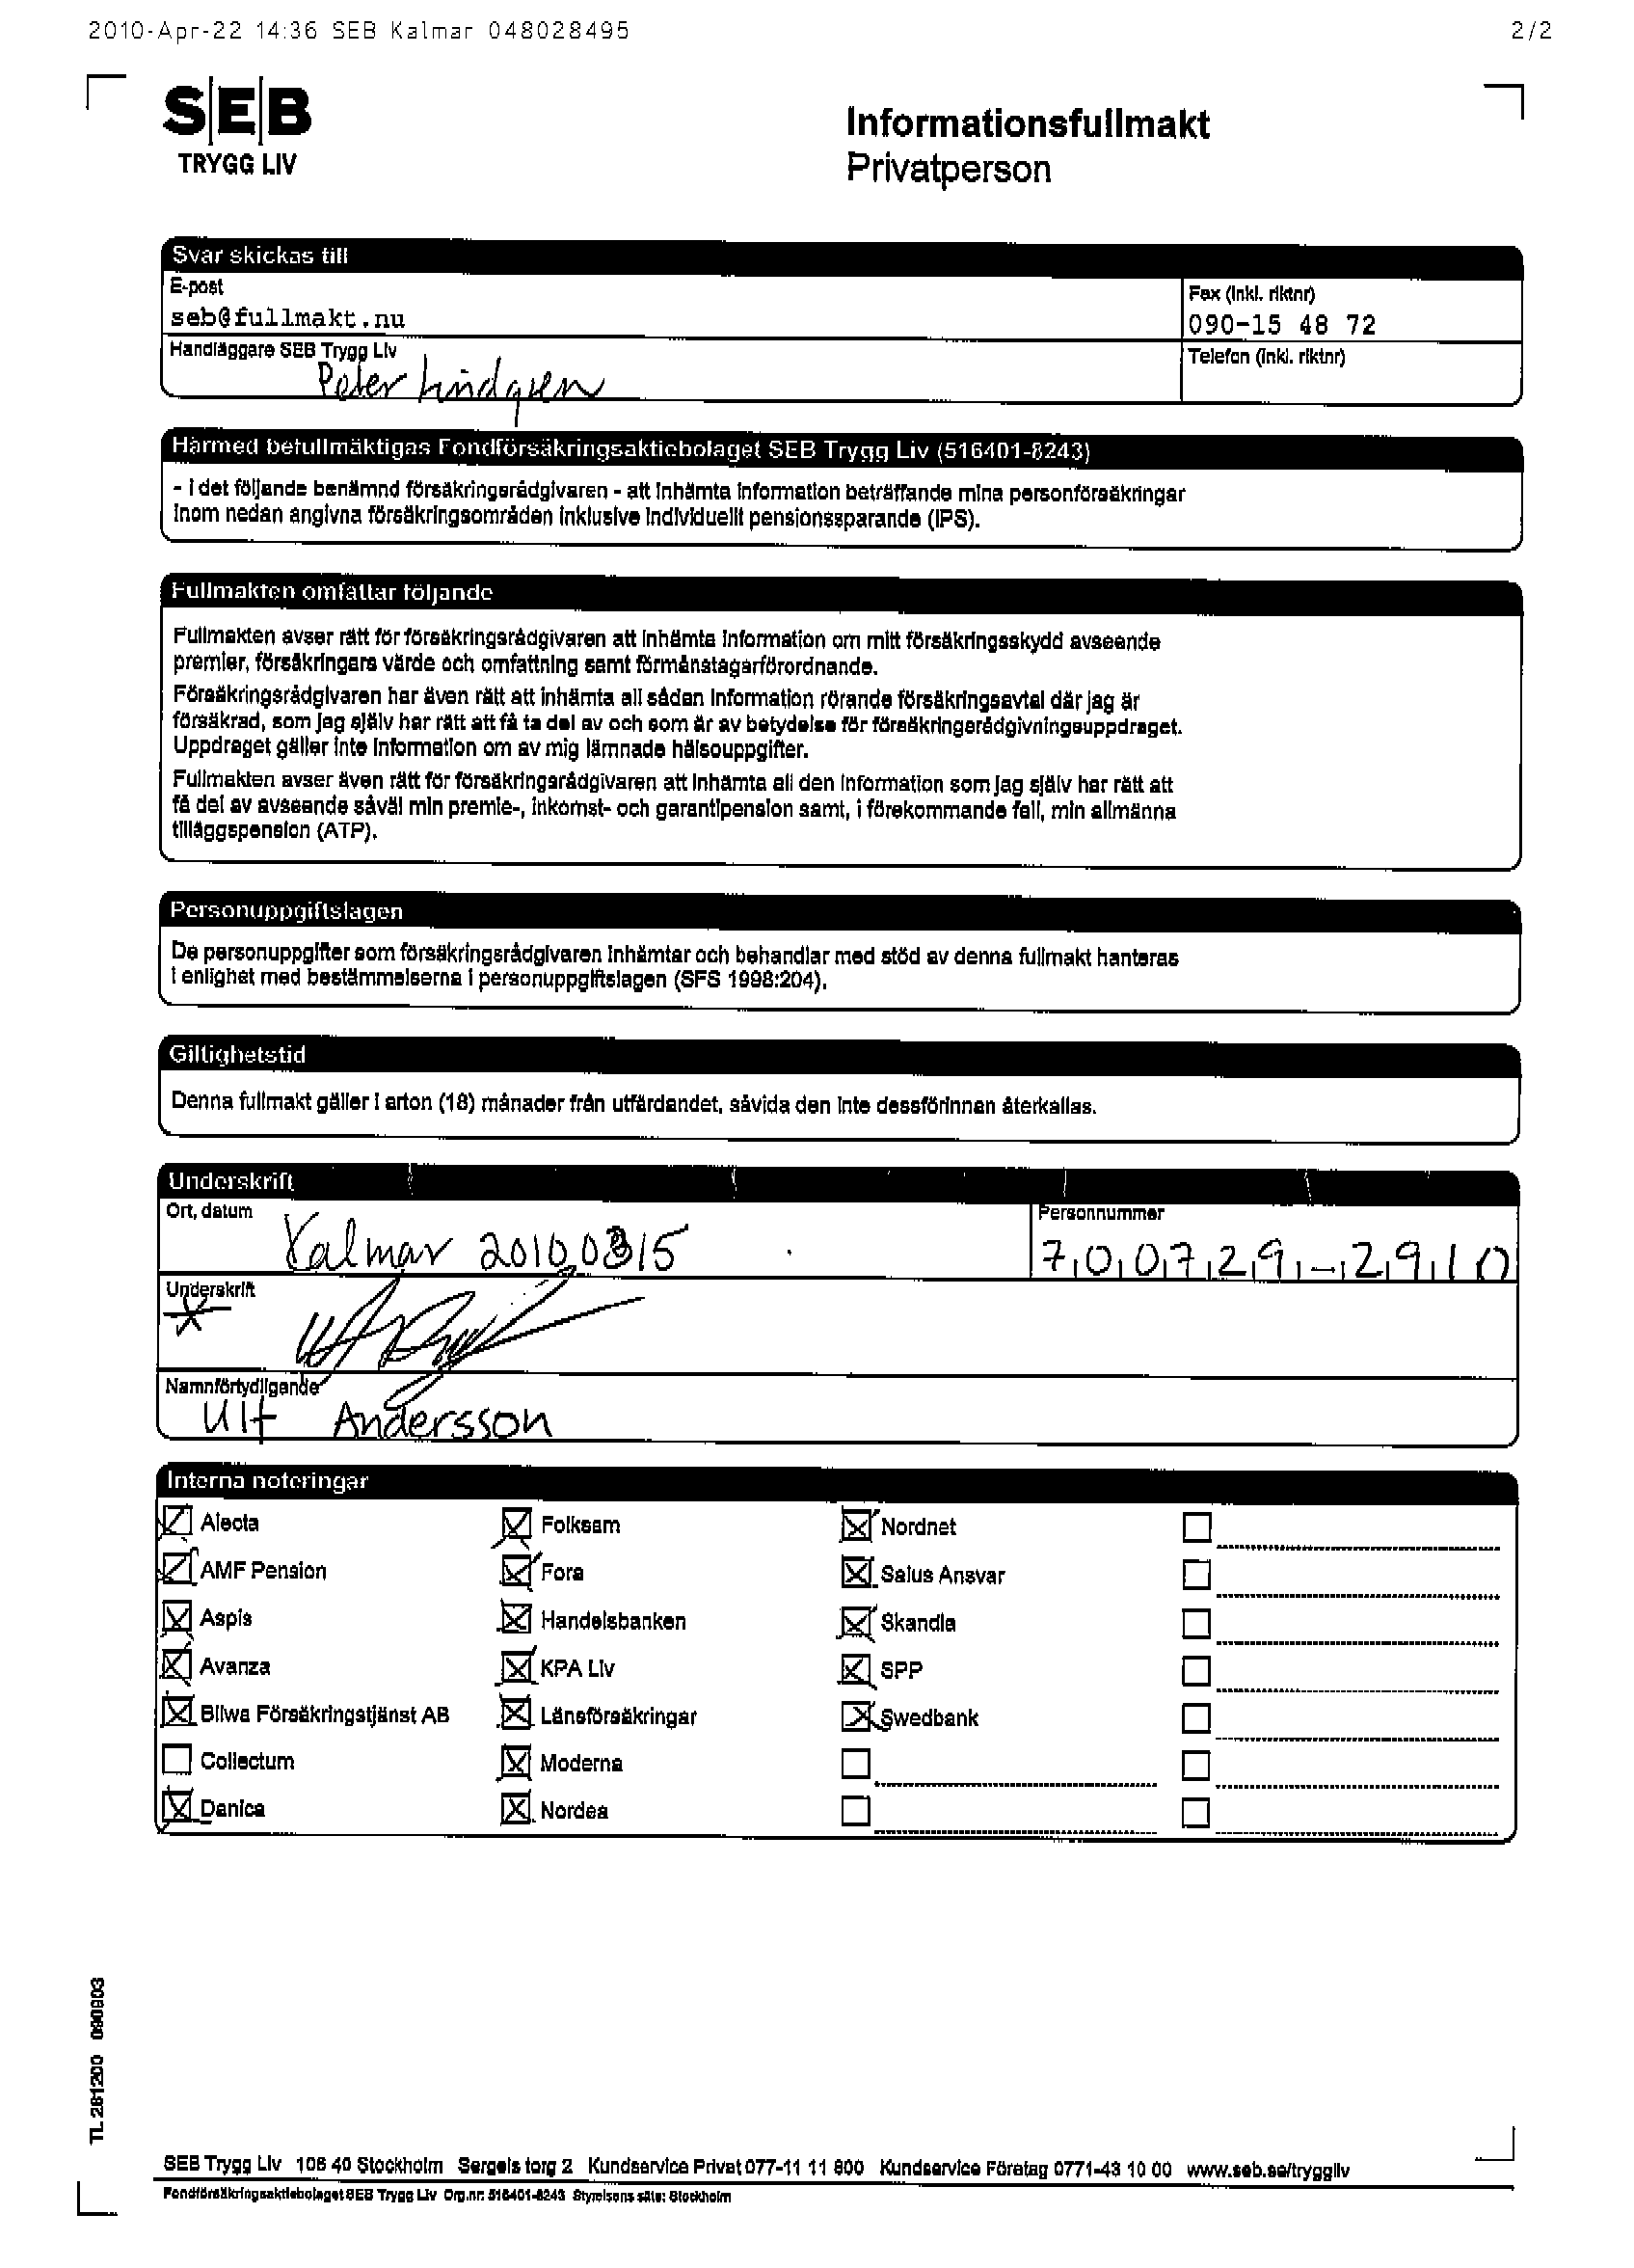 2010-Apr-22 14:36 SEB Kalmar 048028495 2/2
SEB
TRYGG LIV
Informationsfullmakt
Privatperson
Svar skickas till
E-post
seb@fullmakt.nu
Fax (inkl. riktnr)
090-15 48 72
Handläggare SEB Trygg Liv
Peter Lindgren
Telefon (inkl. riktnr)
Härmed befullmäktigas Fondförsäkringsaktiebolaget SEB Trygg Liv (516401-8243)
- i det följande benämnd försäkringsrådgivaren - att inhämta information beträffande mina personförsäkringar
inom nedan angivna försäkringsområden inklusive individuellt pensionssparande (IPS).
Fullmakten omfattar följande
Fullmakten avser rätt för försäkringsrådgivaren att inhämta information om mitt försäkringsskydd avseende
premier, försäkringars värde och omfattning samt förmånstagarförordnande.
Försäkringsrådgivaren har även rätt att inhämta all sådan information rörande försäkringsavtal där jag är
försäkrad, som jag själv har rätt att få ta del av och som är av betydelse för försäkringsrådgivningsuppdraget.
Uppdraget gäller inte information om av mig lämnade hälsouppgifter.
Fullmakten avser även rätt för försäkringsrådgivaren att inhämta all den information som jag själv har rätt att
få del av avseende såväl min premie-, inkomst- och garantipension samt, i förekommande fall, min allmänna
tilläggspension (ATP).
Personuppgiftslagen
De personuppgifter som försäkringsrådgivaren inhämtar och behandlar med stöd av denna fullmakt hanteras
i enlighet med bestämmelserna i personuppgiftslagen (SFS 1998:204).
Giltighetstid
Denna fullmakt gäller i arton (18) månader från utfärdandet, såvida den inte dessförinnan återkallas.
Underskrift
Ort, datum
Kalmar 20100315
Personnummer
700729-2910
Underskrift
Namnförtydligande
Ulf Andersson
Interna noteringar
Alecta Folksam Nordnet
AMF Pension Fora Salus Ansvar
Aspis Handelsbanken Skandia
Avanza KPA Liv SPP
Bliwa Försäkringstjänst AB Länsförsäkringar Swedbank
Collectum Moderna
Danica Nordea
TL 281200 090903
SEB Trygg Liv 106 40 Stockholm Sergels torg 2 Kundservice Privat 077-11 11 800 Kundservice Företag 0771-43 10 00 www.seb.se/tryggliv
Fondförsäkringsaktiebolaget SEB Trygg Liv Org.nr: 516401-8243 Styrelsens säte: Stockholm